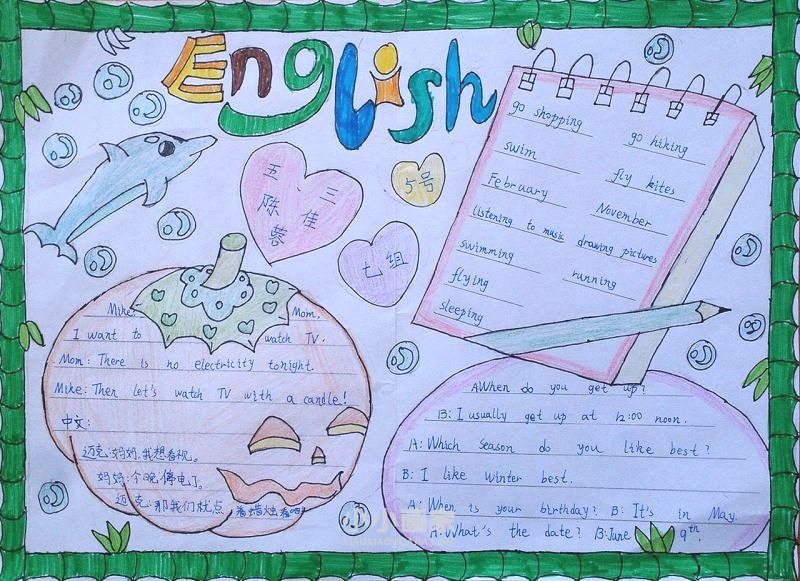 English
五 三
陈 佳
蓉
5号
七组
go shopping
go hiking
swim
fly kites
February
November
listening to music
drawing pictures
swimming
running
flying
sleeping
Mike: Mom,
I want to watch TV.
Mom: There is no electricity tonight.
Mike: Then let's watch TV with a candle!
中文:
迈克:妈妈,我想看视。
妈妈:今晚停电了。
迈克:那我们就点着蜡烛看吧!
A When do you get up?
B: I usually get up at 12:00 noon.
A: Which season do you like best?
B: I like winter best.
A: When is your birthday? B: It's in May.
A: What's the date? B: June 9th.